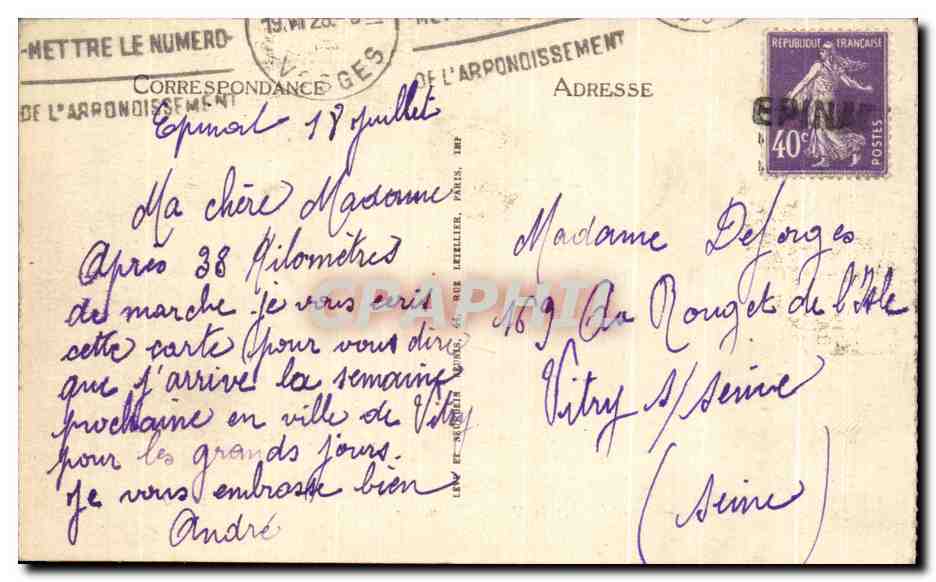 -METTRE LE NUMERO-
DE L'ARRONDISSEMENT
19.VII 28
VOSGES
DE L'ARRONDISSEMENT
CORRESPONDANCE
ADRESSE
REPUBLIQUE FRANÇAISE
EPINAL
40c
POSTES
Epinal 18 Juillet
Ma chère Madame
Après 38 Kilomètres
de marche je vous écris
cette carte pour vous dire
que j'arrive la semaine
prochaine en ville de Vitry
pour les grands jours.
Je vous embrasse bien
André
LEVY ET NEURDEIN REUNIS, RUE LETELLIER, PARIS, IMP
Madame Deforges
169 Rouget de l'Isle
Vitry s/ seine
(Seine)
CPAPHIL